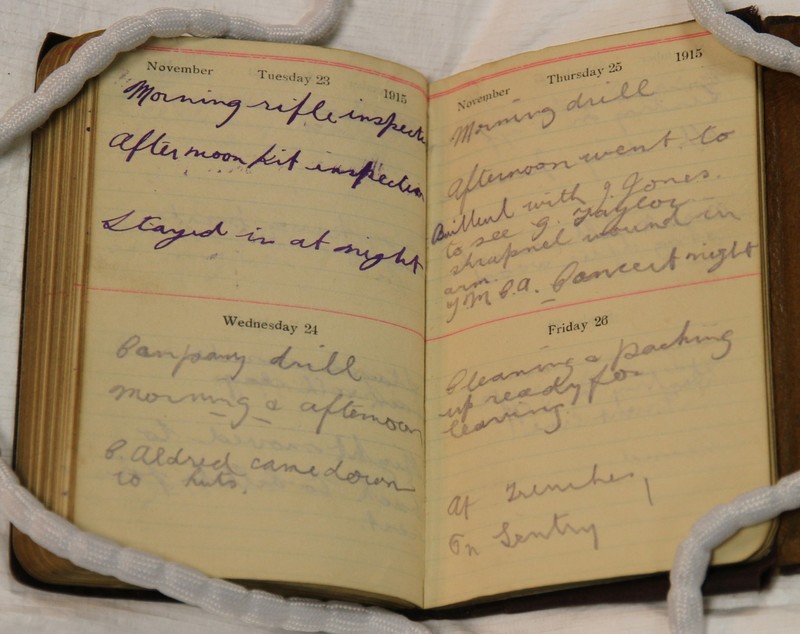 November Tuesday 23 1915
Morning rifle inspectn
Afternoon kit inspection
Stayed in at night
Wednesday 24
Company drill
morning & afternoon
C. Aldred came down
to huts.
November Thursday 25 1915
Morning drill
Afternoon went to
with J Jones.
to see J. Taylor
shrapnel wound in
arm.
Y M C.A. Concert night
Friday 26
Cleaning & packing
up ready for
learning.
At Trenches
On Sentry